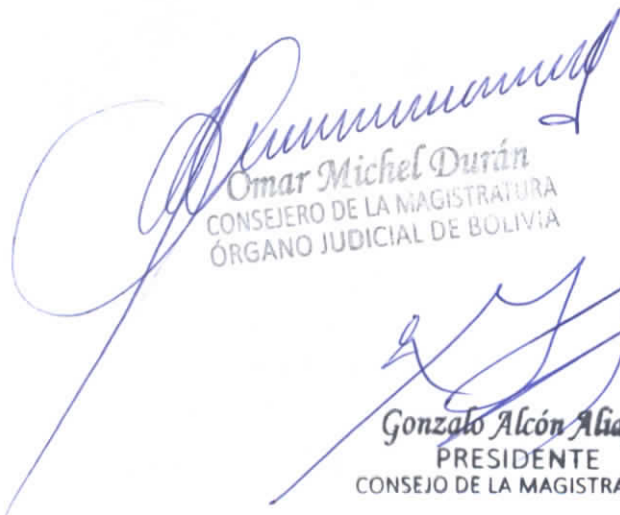 Omar Michel Durán
CONSEJERO DE LA MAGISTRATURA
ÓRGANO JUDICIAL DE BOLIVIA
Gonzalo Alcón
PRESIDENTE
CONSEJO DE LA